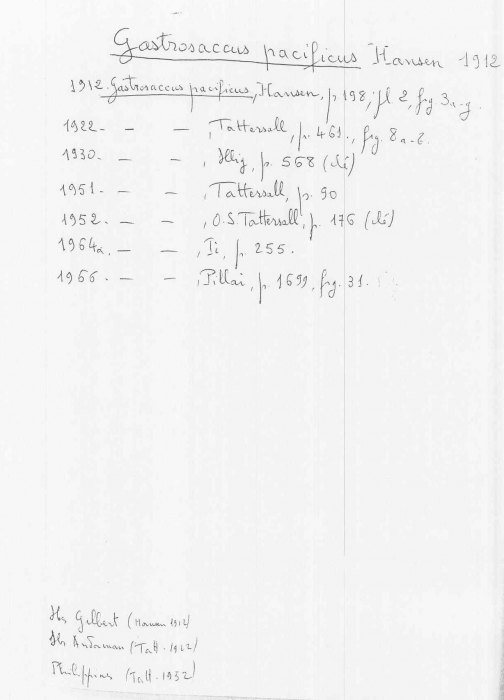 Gastrosaccus pacificus Hansen 1912
1912. Gastrosaccus pacificus, Hansen, p. 198, pl 2, fig 3a-g.
1922. — — , Tattersall, p. 461., fig 8a-b.
1930. — — , Illig, p. 558 (clé)
1951. — — , Tattersall, p. 90
1952. — — , O.S Tattersall, p. 176 (clé)
1964a. — — , Ii, p. 255.
1966. — — , Pillai, p. 1699, fig. 31.
Iles Gilbert (Hansen 1912)
Iles Andaman (Tatt. 1922)
Philippines (Tatt. 1952)